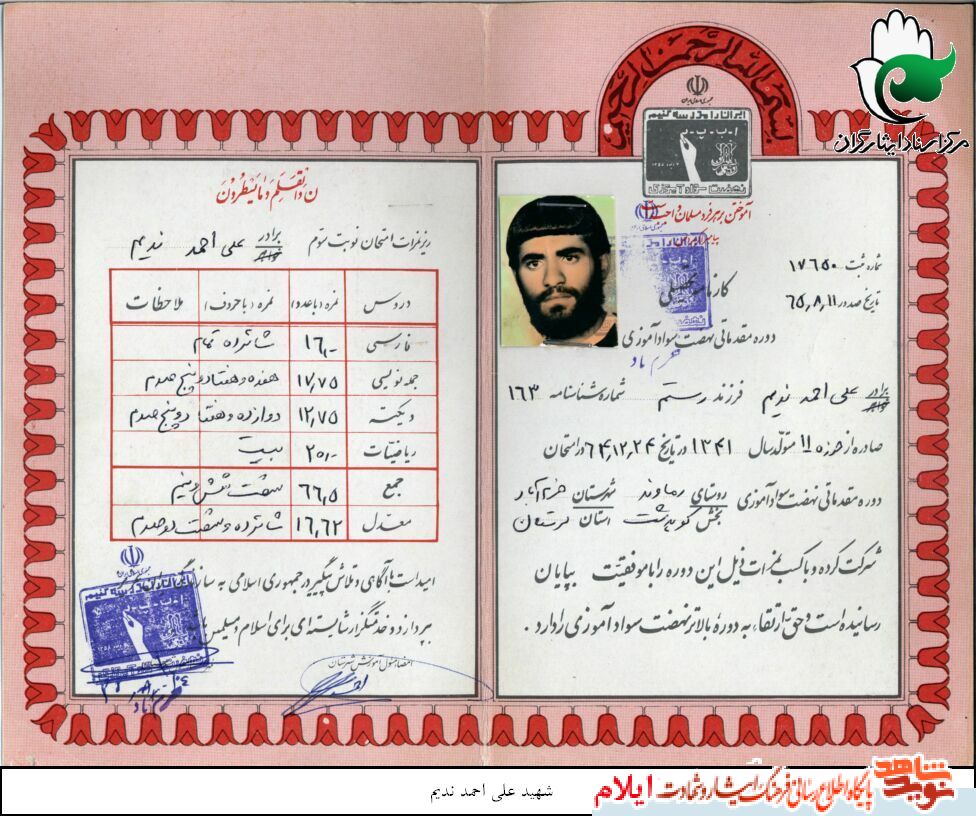 بسم الله الرحمن الرحیم
جمهوری اسلامی ایران
ایران را مدرسه کنیم
نهضت سواد آموزی
آموختن بر هر فرد مسلمان واجب
شماره ثبت ۱۷۶۵۰
تاریخ صدور ۶۵,۸,۱۱
دوره مقدماتی نهضت سوادآموزی
خرم آباد
برادر خواهر علی احمد ندیم فرزند رستم شماره شناسنامه ۱۶۳
صادره از حوزه ۱۱ متولد سال ۱۳۴۱ در تاریخ ۶۴,۱۲,۲۴ در امتحان
دوره مقدماتی نهضت سوادآموزی روستای رماوند شهرستان خرم آباد
بخش کوهدشت استان لرستان
شرکت کرده و با کسب نمرات ذیل این دوره را با موفقیت بپایان
رسانیده است و حق ارتقاء به دوره بالاتر نهضت سوادآموزی را دارد.
ن والقلم و ما یسطرون
ریز نمرات امتحان نوبت سوم برادر خواهر علی احمد ندیم
دروس نمره (با عدد) نمره (با حروف) ملاحظات
فارسی ۱۶,- شانزده تمام
جمله نویسی ۱۷,۷۵ هفده و هفتاد و پنج صدم
دیکته ۱۲,۷۵ دوازده و هفتاد و پنج صدم
ریاضیات ۲۰,- بیست
جمع ۶۶,۵ شصت شش و نیم
معدل ۱۶,۶۲ شانزده و شصت دو صدم
امید است با آگاهی و تلاش پیگیر در جمهوری اسلامی به سازندگی
بپردازد و خدمتگزار شایسته ای برای اسلام و مسلمین
امضاء مسئول آموزش شهرستان
خرم آباد
مرکز اسناد ایثارگران
شهید علی احمد ندیم
نوید شاهد پایگاه اطلاع رسانی فرهنگ ایثار و شهادت ایلام